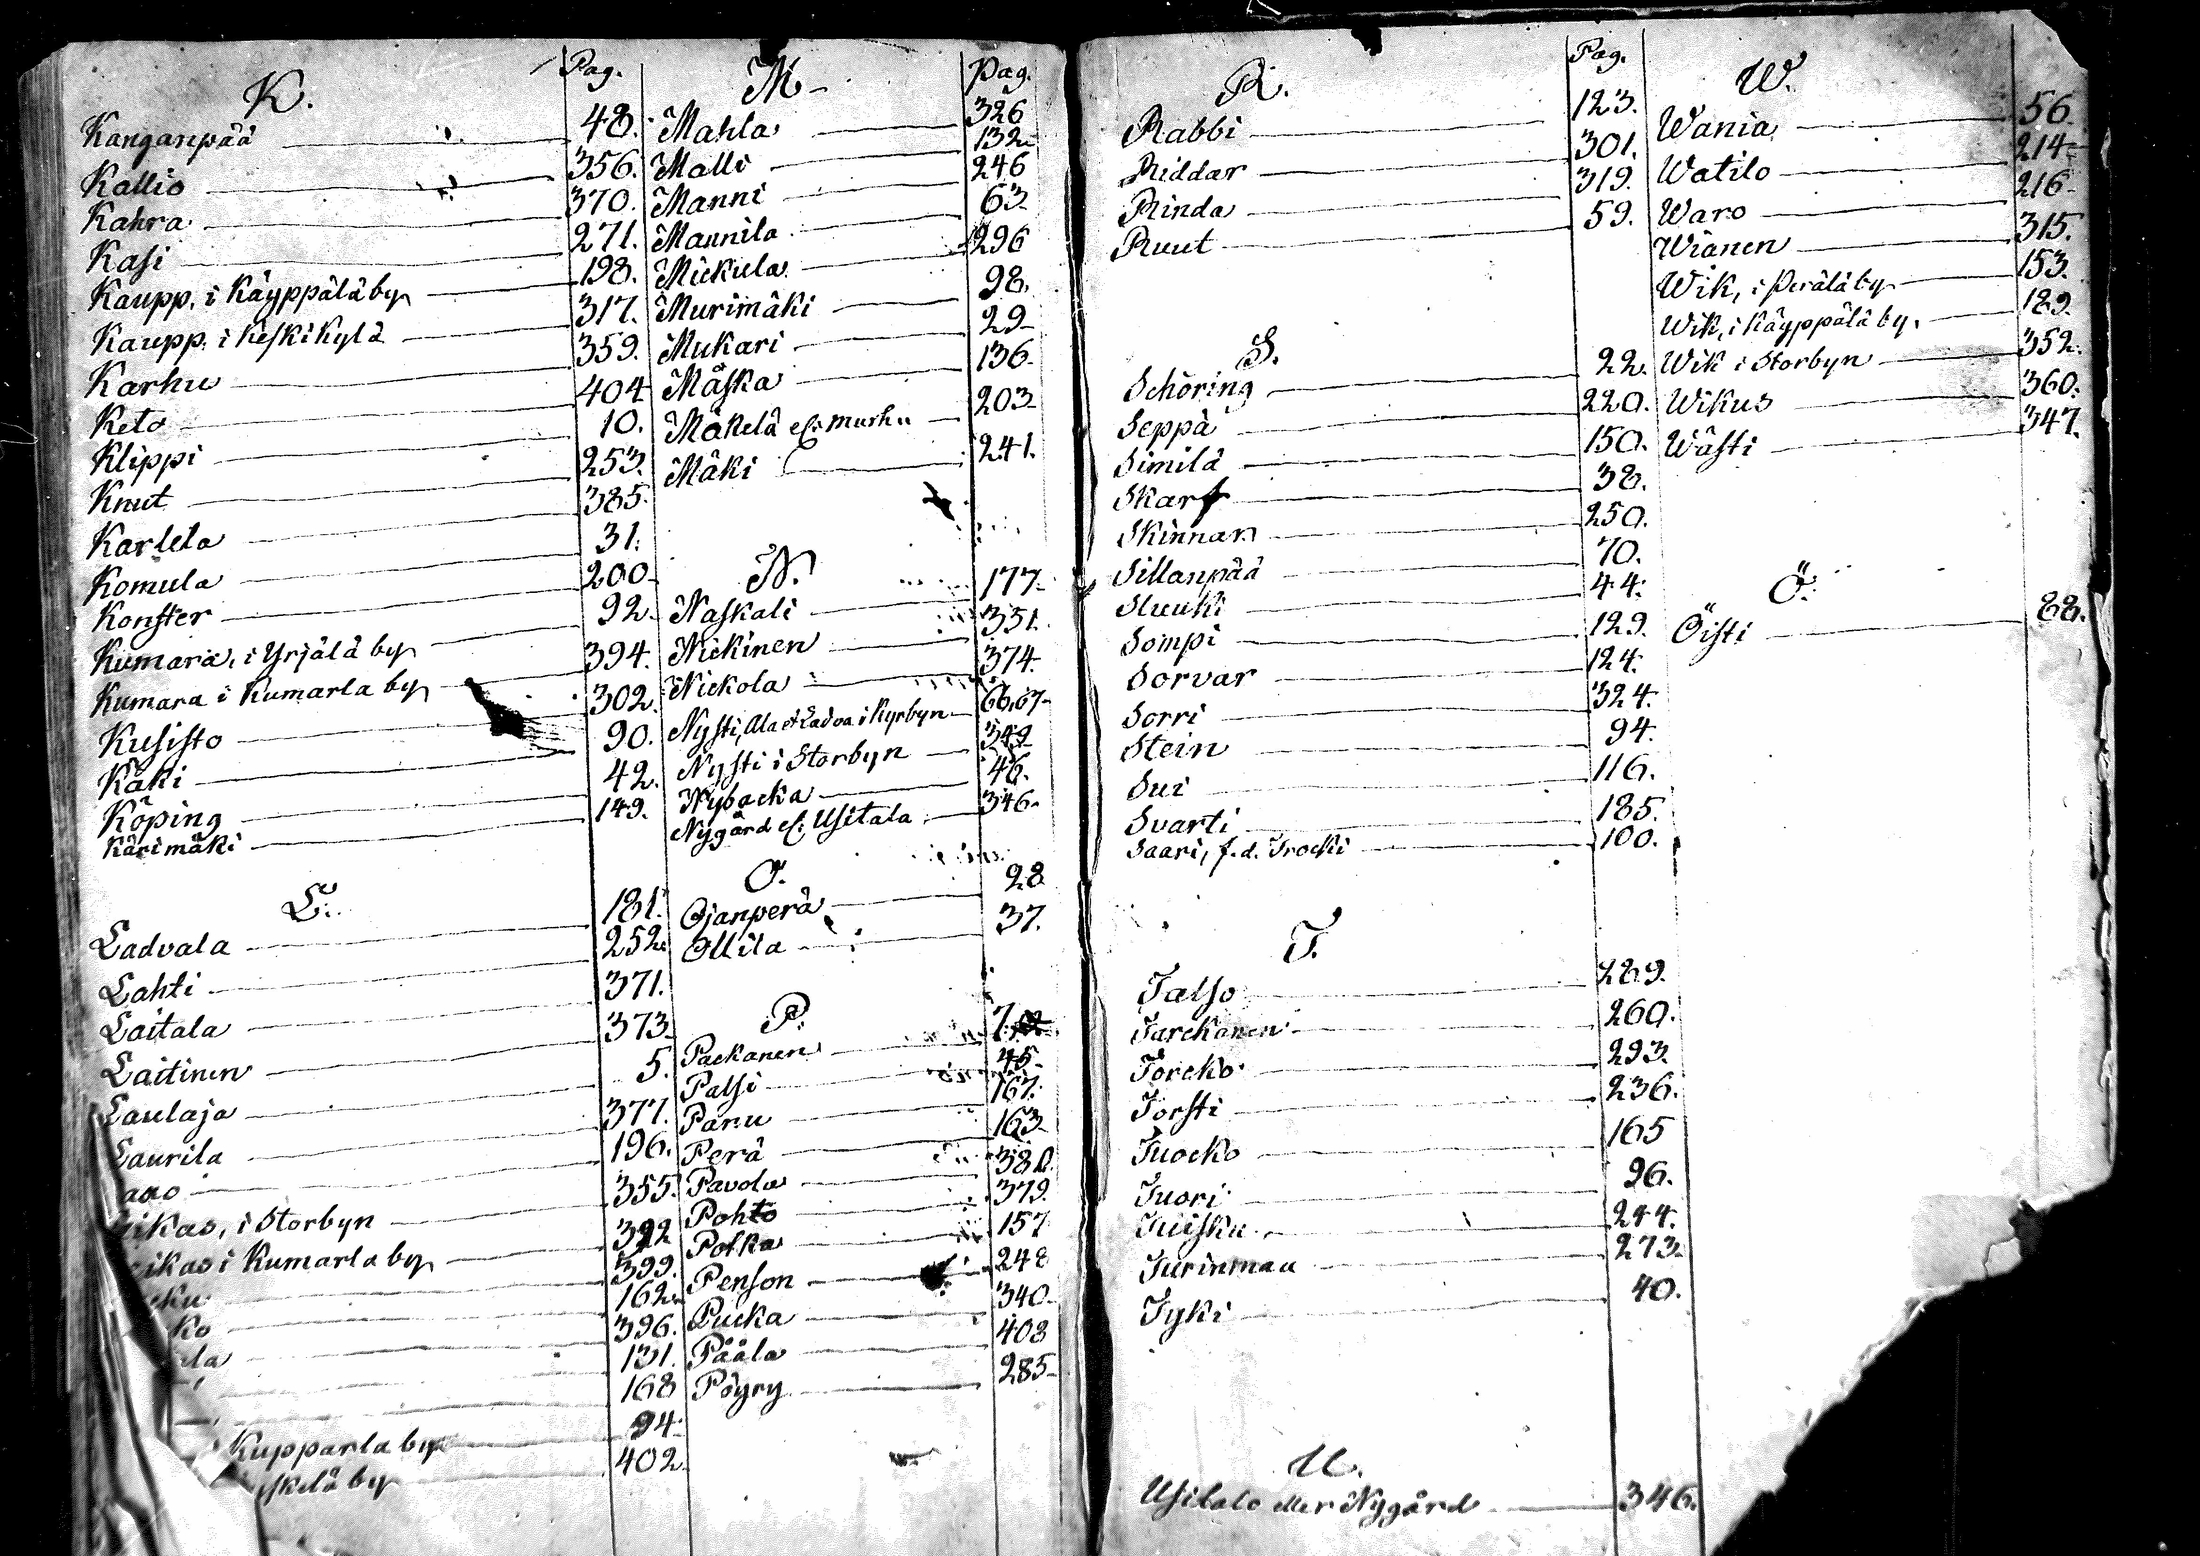 K. Pag.
Kanganpää 48.
Kallio 356.
Kahra 370.
Kasi 271.
Kaupp, i Käyppälä by 198.
Kaupp, i Keskikylä 317.
Karhu 359.
Keto 404
Klippi 10.
Knut 253.
Karlela 385.
Komula 31.
Konster 200
Kumara, i Yrjälä by 92
Kumara i Kumarla by 394.
Kusisto 302.
Käki 90.
Köping 42.
Kärimäki 149.
L.
Ladvala 181.
Lahti 252.
Laitala 371.
Laitinen 373.
Laulaja 5.
Laurila 377.
196.
ikas, i Storbyn 355.
ikas i Kumarla by 392
399.
162.
396.
131.
168
94.
Kupparla by 402
skelä by
M Pag.
Mahla 326
Malli 132
Manni 246
Mannila 63
Mickula 296
Murimäki 98.
Mukari 29
Måska 136
Mäkelä el. Murhu 203
Mäki 241.
N.
Naskali 177
Nickinen 331.
Nickola 374
Nysti, Ala & Ladva i Kyrbyn 66,67
Nysti i Storbyn 349
Nybacka 46.
Nygård el. Usitala 346
O.
Ojanperä 28
Ollila 37.
P.
Packanen 7.
Palsi 45
Panu 167.
Perä 163
Pavola 380.
Pohto 379.
Polka 157
Penson 248
Pucka 340
Pääla 408
Pöyry 285
R. Pag.
Rabbi 123.
Riddar 301.
Rinda 319.
Ruut 59.
S.
Schöring 22.
Seppä 220.
Similä 150.
Skarf 38.
Skinnar 250.
Sillanpää 70.
Sluuki 44.
Sompi 129.
Sorvar 124.
Sorri 324.
Stein 94.
Sui 116.
Svarti 185.
Saari, f.d. Trocki 100.
T.
Talso 289.
Tarckanen 260.
Torcko 293.
Torsti 236.
Tuocko 165
Tuori 26.
Tuisku 244.
Turinmaa 273.
Tyki 40.
U.
Usitalo eller Nygård 346.
W.
Wania 56.
Watilo 214
Waro 216
Wiänen 315.
Wik, i Perälä by 153.
Wik, i Käyppälä by 189.
Wik i Storbyn 352.
Wikus 360.
Wästi 347.
Ö.
Öisti 88.